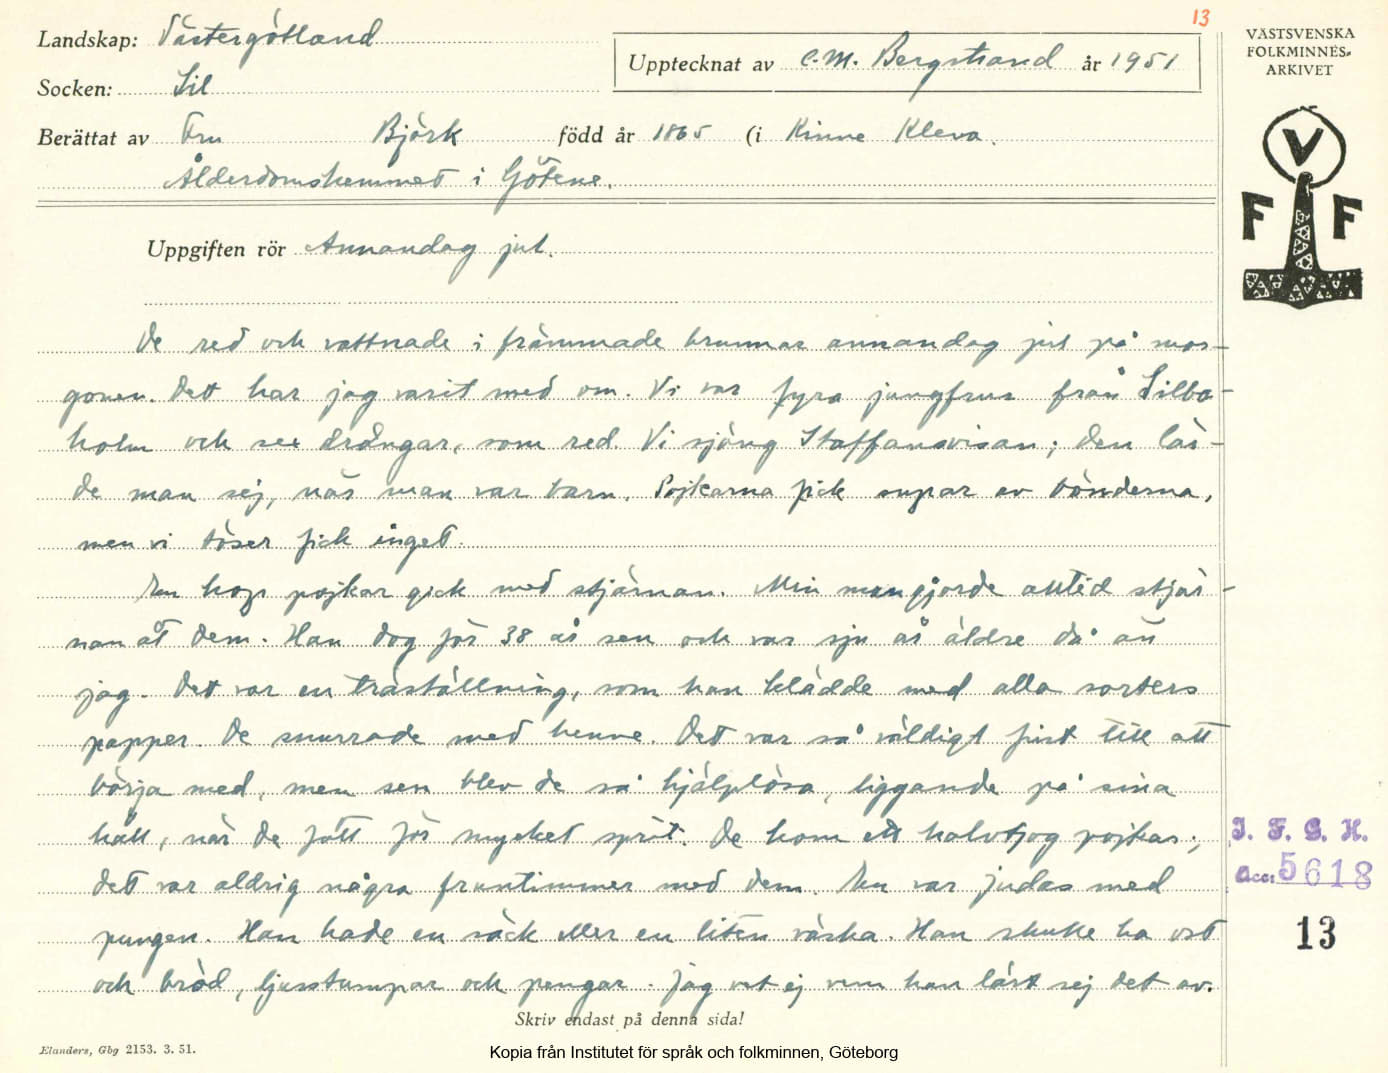 13
Landskap: Västergötland
Upptecknat av C. M. Bergstrand år 1951
Socken: Sil
Berättat av Fru Björk född år 1865 (i Kinne Kleva.
Ålderdomshemmet i Götene.
Uppgiften rör Annandag jul.
De red och vattnade i främmade brunnar annandag jul på mor-
gonen. Dett har jag varit med om. Vi var fyra jungfrur från Silbo-
holm och sex drängar, som red. Vi sjöng Staffansvisan; den lär-
de man sej, när man var barn. Pojkarna fick supar av bönderna,
men vi töser fick inget.
En hop pojkar gick med stjärnan. Min man gjorde alltid stjär-
nan åt dem. Han dog för 38 år sen och var sju år äldre då än
jag. Det var en träställning, som han klädde med alla sorters
papper. De snurrade med henne. Det var så väldigt fint till att
börja med, men sen blev de så hjälplösa, liggande på sina
håll, när de fått för mycket sprit. De kom ett halvtjog pojkar;
det var aldrig några fruntimmer med dem. En var judas med
pungen. Han hade en säck eller en liten väska. Han skulle ha ost
och bröd, ljusstumpar och pengar. Jag vet ej vem han lärt sej det av.
Skriv endast på denna sida!
Elanders, Gbg 2153. 3. 51.
Kopia från Institutet för språk och folkminnen, Göteborg
VÄSTSVENSKA
FOLKMINNES-
ARKIVET
V
F F
I. F. G. H.
Acc: 5618
13